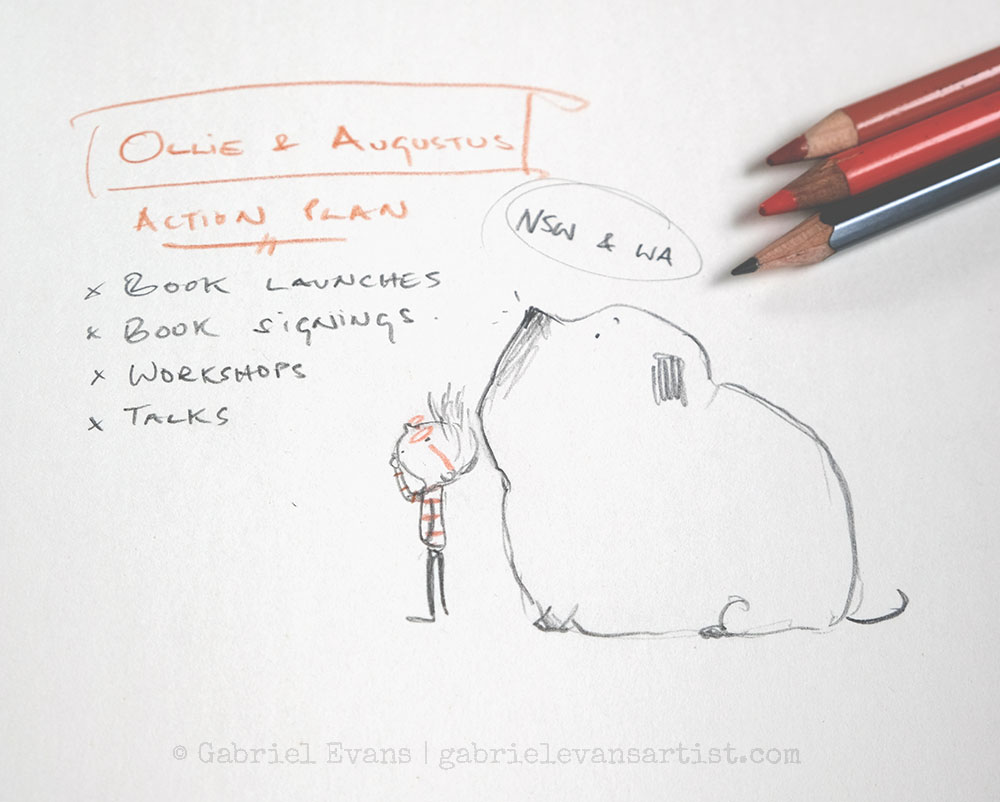 Ollie & Augustus
Action Plan
x Book Launches
x Book signings.
x Workshops
x Talks
NSW & WA
© Gabriel Evans | gabrielevansartist.com